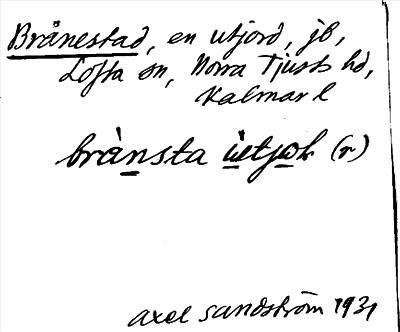 Brånestad, en utjord, jb,
Lofta sn, Norra Tjusts hd,
Kalmar l
brànsta ùtjoɽ (r)
Axel Sandström 1931